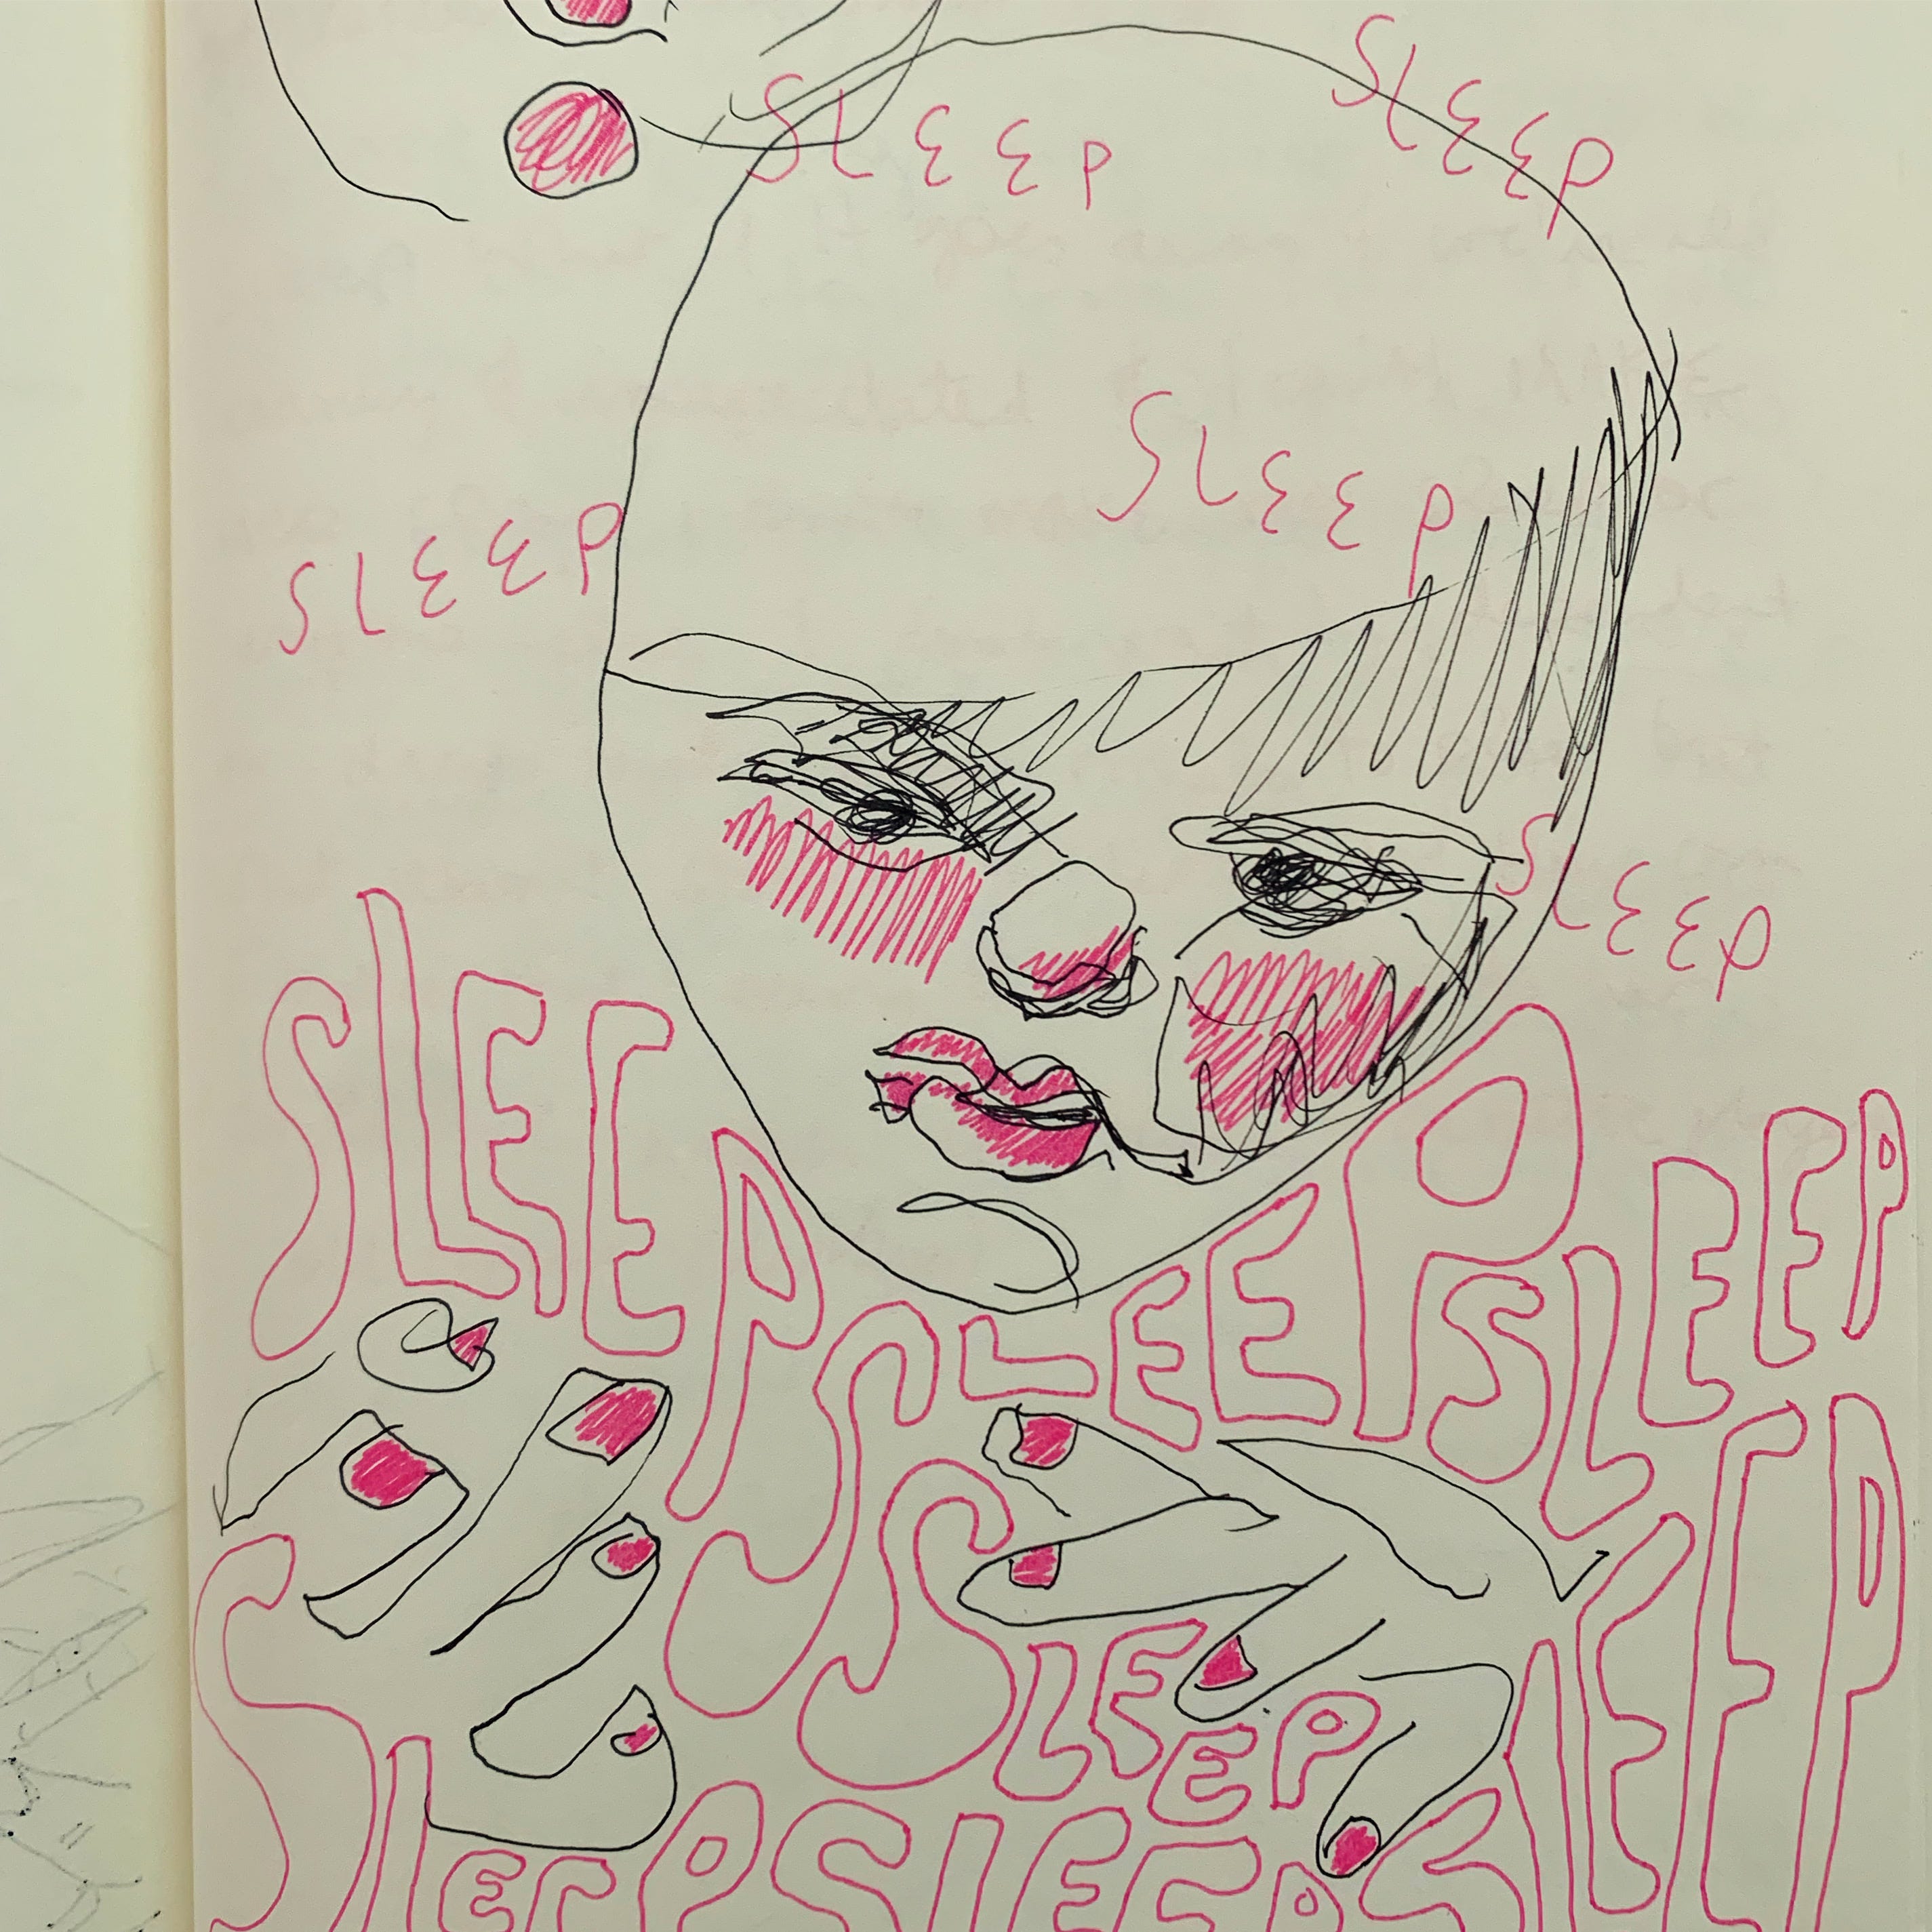 SLEEP
SLEEP
SLEEP
SLEEP
SLEEP
SLEEP
SLEEP
SLEEP
SLEEP
SLEEP
SLEEP SLEEP